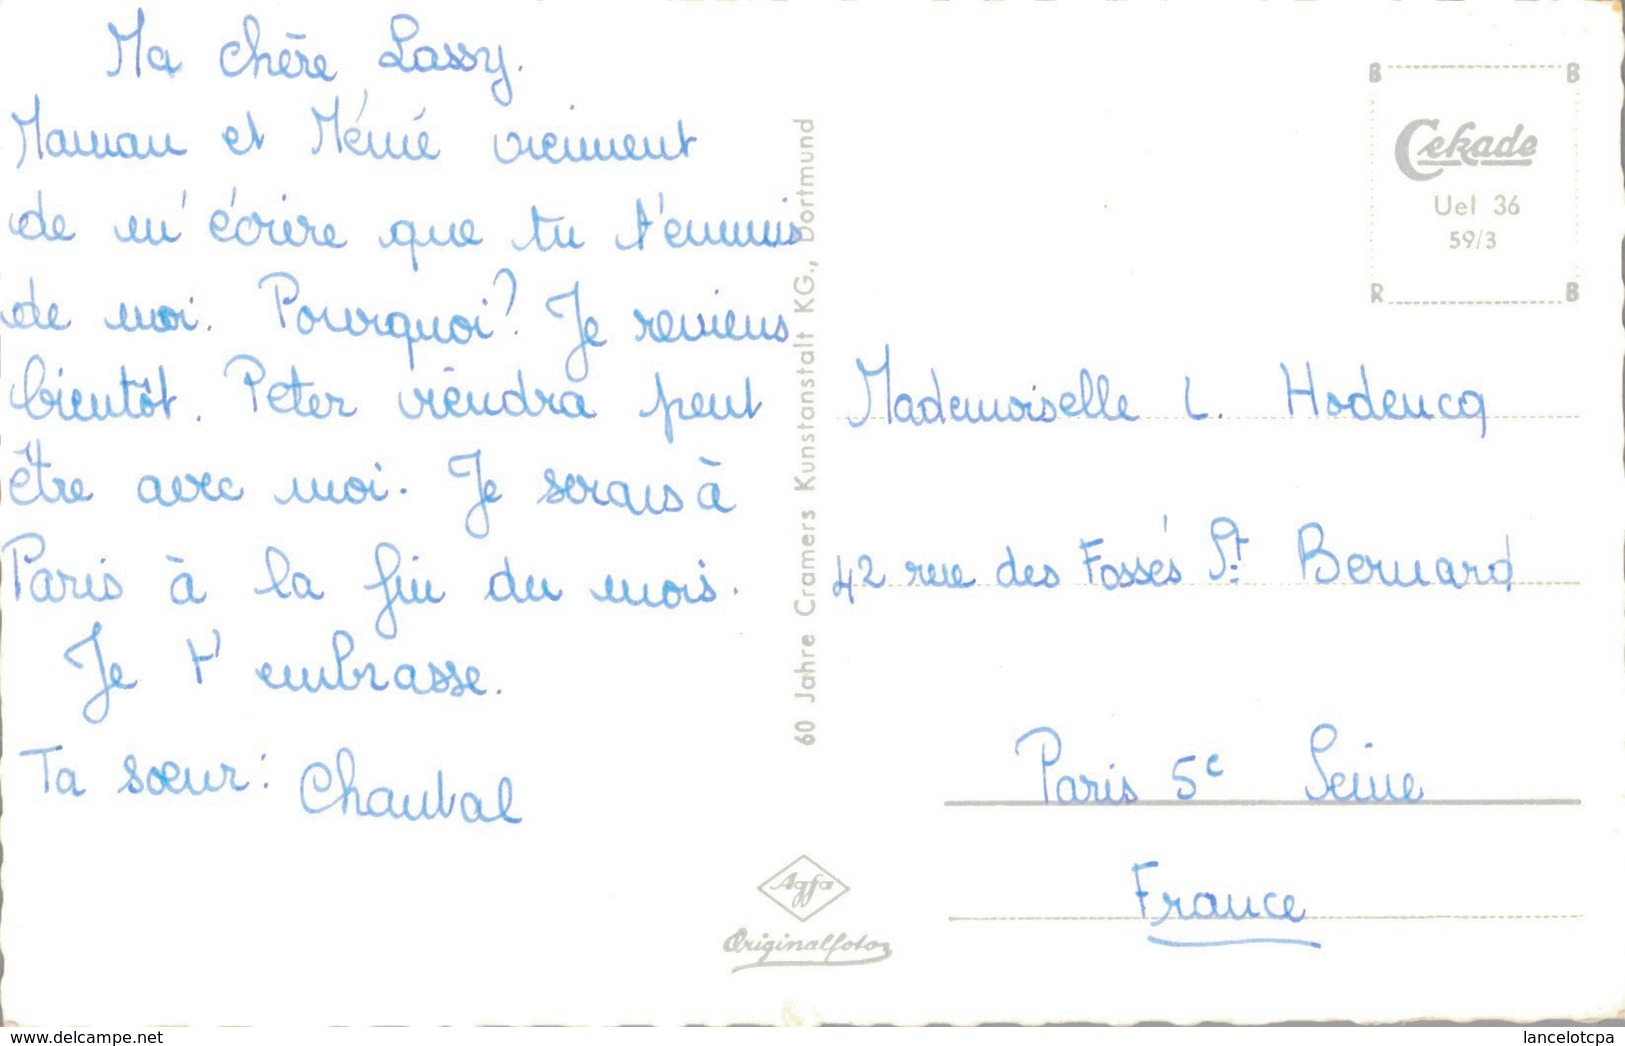 Ma chère Lassy.
Maman et Mémé viennent
de m'écrire que tu t'ennuis
de moi. Pourquoi? Je reviens
bientôt. Peter viendra peut
être avec moi. Je serais à
Paris à la fin du mois.
Je t'embrasse.
Ta sœur: Chantal
60 Jahre Cramers Kunstanstalt KG., Dortmund
Agfa
Originalfoto
B B
Cekade
Uel 36
59/3
R B
Mademoiselle L. Hodencq
42 rue des Fossés St Bernard
Paris 5e Seine
France
www.delcampe.net
lancelotcpa